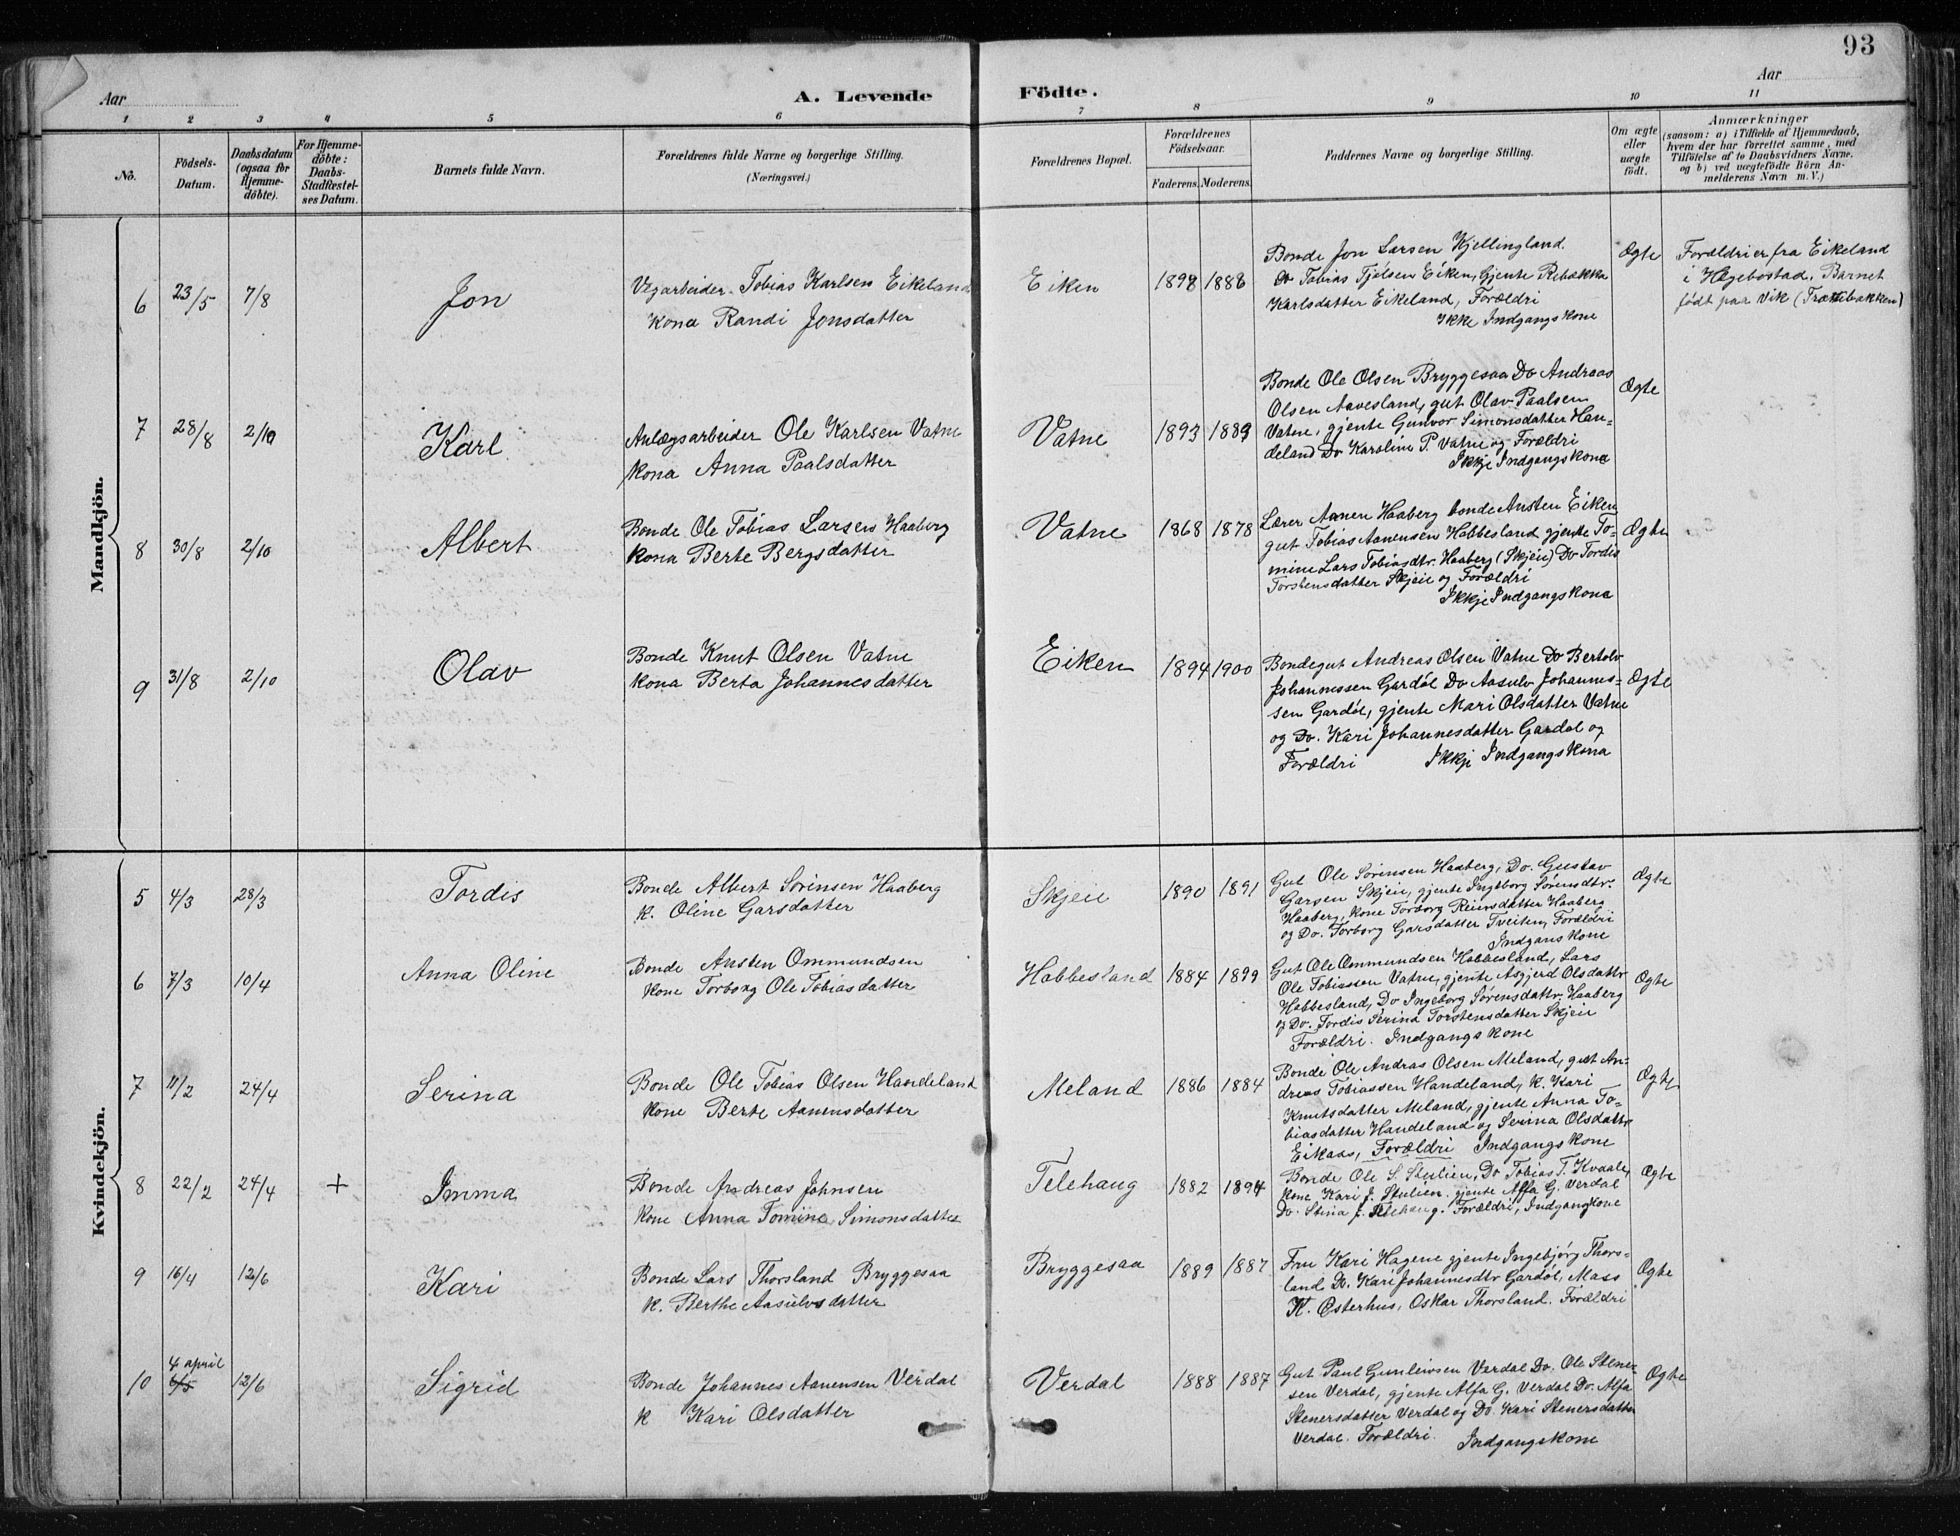 93
Aar
A. Levende
Födte.
Aar
1 2 3 4 5 6 7 8 9 10 11
No.
Födsels-Datum.
Daabsdatum (ogsaa for Hjemme-döbte).
For Hjemme-döbte: Daabs-Stadfæstel-ses Datum.
Barnets fulde Navn.
Forældrenes fulde Navne og borgerlige Stilling.
(Næringsvei.)
Forældrenes Bopæl.
Forældrenes Födselsaar.
Faderens. Moderens.
Faddernes Navne og borgerlige Stilling.
Om ægte eller uægte født.
Anmærkninger
(saasom: a) i Tilfælde af Hjemmedaab,
hvem der har forrettet samme, med
Tilføielse af to Daabsvidners Navne,
og b) ved uægtefödte Börn An-
melderens Navn m. V.)
Mandkjön.
6 23/5 7/8 Jon
Vegarbeider Tobias Karlsen Eikeland
kona Randi Jonsdatter
Eiken 1898 1886
Bonde Jon Larsen Kjellingland.
Do Tobias Tjølsen Eiken, Gjente Rebækka
Karlsdatter Eikeland, Forældri
Ikke Indgangskone
Ægte
Forældri er fra Eikeland
i Hægebostad. Barnet
født paa Vik (Trættebakken)
7 28/8 2/10 Karl
Anlægsarbeider Ole Karlsen Vatne
kona Anna Paalsdatter
Vatne 1893 1889
Bonde Ole Olsen Bryggesaa Do Andreas
Olsen Aavesland, gut Olav Paalsen
Vatne, gjente Gunvor Simonsdatter Han-
deland Do Karoline P. Vatne og Forældri
Ikkje Indgangskone
Ægte
8 30/8 2/10 Albert
Bonde Ole Tobias Larsen Haaberg
kona Berte Bergsdatter
Vatne 1868 1878
Lærer Aanen Haaberg bonde Ansten Eiken
gut Tobias Aanensen Habbesland gjente To-
mine Lars Tobiasdtr. Haaberg (Skjeie) Do Tordis
Torstensdatter Skjeie og Forældri
Ikkje Indgangskona
Ægte
9 31/8 2/10 Olav
Bonde Knut Olsen Vatne
kona Berta Johannesdatter
Eiken 1894 1900
Bondegut Andreas Olsen Vatne Do Bertolv
Johannessen Gardøl Do Aasulv Johannes-
sen Gardøl, gjente Mari Olsdatter Vatne
og Do. Kari Johannesdatter Gardøl og
Forældri Ikkje Indgangskona
Ægte
Kvindekjön.
5 4/3 28/3 Tordis
Bonde Albert Sörinsen Haaberg
k. Oline Garsdatter
Skjeie 1890 1891
Gut Ole Sørensen Haaberg, Do. Gustav
Garsen Skjeie, gjente Ingeborg Sørensdtr.
Haaberg, kone Torborg Reinsdatter Haaberg
og Do. Torborg Garsdatter Tveiten, Forældri
Indganskone
Ægte
6 7/3 10/4 Anna Oline
Bonde Ansten Ommundsen
kone Torborg Ole Tobiasdatter
Habbesland 1884 1899
Gut Ole Ommundsen Habbesland, Lars
Ole Tobiassen Vatne, gjente Asgjerd Olsdattr
Habbesland, Do Ingeborg Sørensdattr. Haaberg
og Do. Tordis Serina Torstensdatter Skjeie
Forældri. Indgangskone
Ægte
7 11/2 24/4 Serina
Bonde Ole Tobias Olsen Handeland
kone Berte Aanensdatter
Meland 1886 1884
Bonde Ole Andras Olsen Meland, gut An-
dreas Tobiassen Handeland, k. Kari
Knutsdatter Meland, gjente Anna To-
biasdatter Handeland og Serina Olsdattr
Eikaas, Forældri Indgangskone
Ægte
8 22/2 24/4 + Imma
Bonde Andreas Johnsen
kone Anna Tomine Simonsdatter
Telehaug 1882 1894
Bonde Ole S. Stulien, Do Tobias T. Kvaale,
kone Kari J. Stulien. gjente Alfa G. Verdal
Do. Stina J. Telehaug. Forældri, Indgangkone
Ægte
9 16/4 12/6 Kari
Bonde Lars Thorsland Bryggesaa
k. Berthe Aasulvsdatter
Bryggesaa 1889 1887
Fru Kari Hagene gjente Ingebjørg Thors-
land Do. Kari Johannesdtr Gardøl, Mass
K. Østerhus, Oskar Thorsland. Forældri
Ægte
10 4 april 6/5 12/6 Sigrid
Bonde Johannes Aanensen Verdal
k Kari Olsdatter
Verdal 1888 1887
Gut Paul Gunleivsen Verdal Do. Ole Stene-
sen Verdal, gjente Alfa G. Verdal Do. Alfa
Stenersdatter Verdal og Do. Kari Stenersdatter
Verdal. Forældri. Indgangskone
Ægte